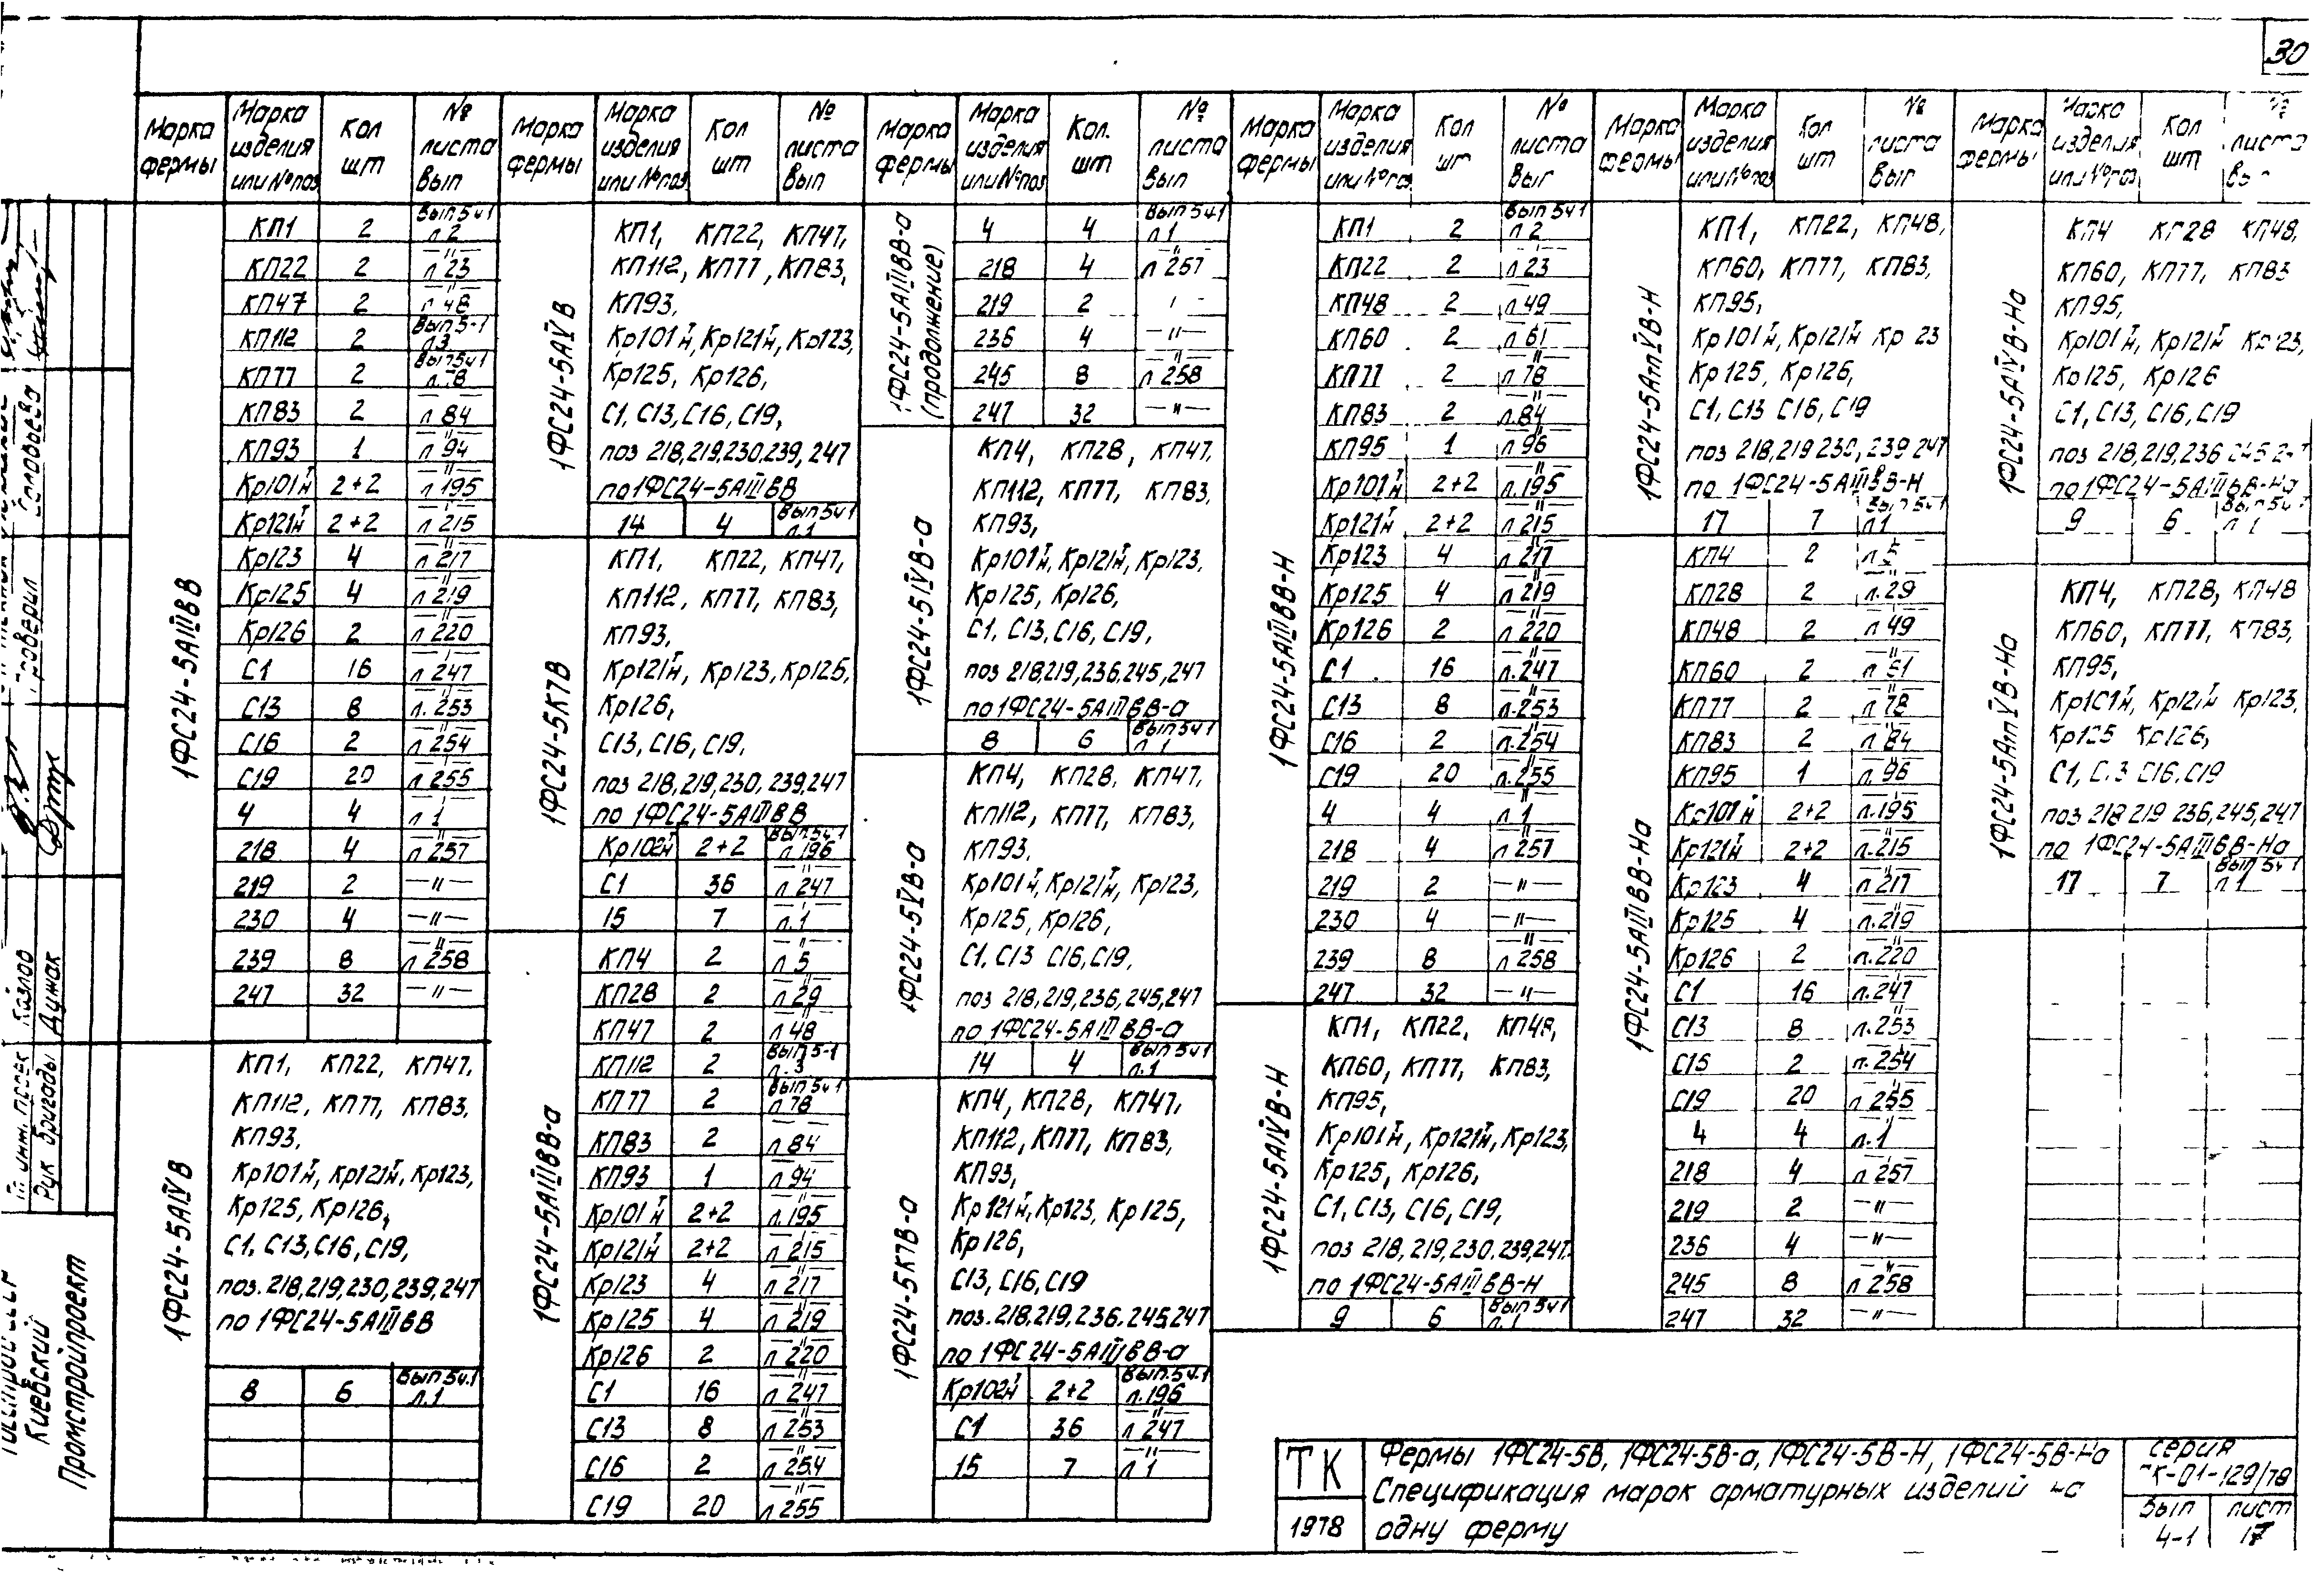 30
Марка фермы | Марка изделия или № поз | Кол шт | № листа Вып
1ФС24-5АIIIвВ
КП1 2 Вып 5ч1 л 2
КП22 2 —"— л 23
КП47 2 —"— л 48
КП112 2 Вып 5-1 л.3
КП77 2 Вып 5ч1 л.78
КП83 2 л 84
КП93 1 —"— л 94
Кр101 I н 2+2 —"— л 195
Кр121 I н 2+2 —"— л 215
Кр123 4 —"— л 217
Кр125 4 —"— л 219
Кр126 2 —"— л 220
С1 16 —"— л 247
С13 8 —"— л. 253
С16 2 —"— л 254
С19 20 —"— л 255
4 4 —"— л 1
218 4 —"— л 257
219 2 —"—
230 4 —"—
239 8 —"— л 258
247 32 —"—
1ФС24-5АIVВ
КП1, КП22, КП47,
КП112, КП77, КП83,
КП93,
Кр101 I н, Кр121 I н, Кр123,
Кр125, Кр126,
С1, С13, С16, С19,
поз. 218,219,230,239,247
по 1ФС24-5АIIIвВ
8 6 Вып 5ч.1 л.1
Марка фермы | Марка изделия или № поз | Кол шт | № листа Вып
1ФС24-5АVВ
КП1, КП22, КП47,
КП112, КП77, КП83,
КП93,
Кр101 I н, Кр121 I н, Кр123,
Кр125, Кр126,
С1, С13, С16, С19,
поз 218,219,230,239,247
по 1ФС24-5АIIIвВ
14 4 Вып 5ч1 л.1
1ФС24-5К7В
КП1, КП22, КП47,
КП112, КП77, КП83,
КП93,
Кр121 I н, Кр123, Кр125,
Кр126,
С13, С16, С19,
поз 218,219,230,239,247
по 1ФС24-5АIIIвВ
Кр102 I н 2+2 Вып.5ч.1 л.196
С1 36 л 247
15 7 л.1
1ФС24-5АIIIвВ-а
КП4 2 —"— л 5
КП28 2 —"— л 29
КП47 2 —"— л 48
КП112 2 Вып 5-1 л.3
КП77 2 Вып 5ч1 л 78
КП83 2 —"— л 84
КП93 1 —"— л 94
Кр101 I н 2+2 —"— л.195
Кр121 I н 2+2 —"— л 215
Кр123 4 —"— л 217
Кр125 4 —"— л 219
Кр126 2 —"— л 220
С1 16 —"— л 247
С13 8 —"— л 253
С16 2 —"— л 254
С19 20 —"— л 255
Марка фермы | Марка изделия или № поз | Кол. шт | № листа Вып
1ФС24-5АIIIвВ-а (продолжение)
4 4 Вып 5ч.1 л 1
218 4 —"— л 257
219 2
236 4 —"—
245 8 —"— л 258
247 32 —"—
1ФС24-5IVВ-а
КП4, КП28, КП47,
КП112, КП77, КП83,
КП93,
Кр101 I н, Кр121 I н, Кр123,
Кр125, Кр126,
С1, С13, С16, С19,
поз 218,219,236,245,247
по 1ФС24-5АIIIвВ-а
8 6 Вып 5ч1 л.1
1ФС24-5VВ-а
КП4, КП28, КП47,
КП112, КП77, КП83,
КП93,
Кр101 I н, Кр121 I н, Кр123,
Кр125, Кр126,
С1, С13 С16, С19,
поз 218,219,236,245,247
по 1ФС24-5АIIIвВ-а
14 4 Вып 5ч1 л.1
1ФС24-5К7В-а
КП4, КП28, КП47,
КП112, КП77, КП83,
КП93,
Кр121 I н, Кр123, Кр125,
Кр126,
С13, С16, С19
поз. 218,219,236.245,247
по 1ФС24-5АIIIвВ-а
Кр102 I н 2+2 Вып.5ч.1 л.196
С1 36 —"— л 247
15 7 —"— л 1
Марка фермы | Марка изделия или № поз | Кол шт | № листа Вып
1ФС24-5АIIIвВ-Н
КП1 2 Вып 5ч1 л 2
КП22 2 л 23
КП48 2 —"— л 49
КП60 2 —"— л 61
КП77 2 —"— л 78
КП83 2 —"— л.84
КП95 1 —"— л 96
Кр101 I н 2+2 —"— л.195
Кр121 I н 2+2 —"— л 215
Кр123 4 —"— л 217
Кр125 4 —"— л 219
Кр126 2 —"— л 220
С1 16 —"— л.247
С13 8 —"— л.253
С16 2 —"— л.254
С19 20 —"— л.255
4 4 —"— л 1
218 4 —"— л 257
219 2 —"—
230 4 —"—
239 8 —"— л 258
247 32 —"—
1ФС24-5АIVВ-Н
КП1, КП22, КП48,
КП60, КП77, КП83,
КП95,
Кр101 I н, Кр121 I н, Кр123,
Кр125, Кр126,
С1, С13, С16, С19,
поз 218,219,230,239,247.
по 1ФС24-5АIIIвВ-Н
9 6 Вып 5ч1 л.1
Марка фермы | Марка изделия или № поз | Кол шт | № листа Вып
1ФС24-5АтVВ-Н
КП1, КП22, КП48,
КП60, КП77, КП83,
КП95,
Кр101 I н, Кр121 I н
Кр125, Кр126,
С1, С13 С16, С19
поз 218,219 230, 239 247
по 1ФС24-5АIIIвВ-Н
17 7 Вып 5ч1 л1
1ФС24-5АIIIвВ-На
КП4 2 л. 5
КП28 2 —"— л.29
КП48 2 л 49
КП60 2 —"— л 61
КП77 2 —"— л 78
КП83 2 —"— л 84
КП95 1 —"— л. 96
Кр101 I н 2+2 л.195
Кр121 I н 2+2 —"— л.215
Кр123 4 —"— л 217
Кр125 4 л.219
Кр126 2 —"— л.220
С1 16 —"— л.247
С13 8 —"— л.253
2 л.254
С19 20 —"— л 255
4 4 л.1
218 4 л 257
219 2 —"—
236 4 —"—
245 8 —"— л 258
247 32 —"—
Марка фермы | Марка изделия или № поз | Кол шт | листа
1ФС24-5АIVВ-На
КП4 КП28 КП48,
КП60, КП77, КП83
КП95,
Кр101 I н, Кр121 I н
Кр125, Кр126
С1, С13, С16, С19
поз 218,219,236
по 1ФС24-5АIIIвВ-На
9 6 Вып 5ч1 л 1
1ФС24-5АтVВ-На
КП4, КП28, КП48
КП60, КП77, КП83,
КП95,
Кр101 I н, Кр121 I н Кр123,
Кр125 Кр126,
С1, С13 С16, С19
поз 218 219 236,245,247
по 1ФС24-5АIIIвВ-На
17 7 Вып 5ч1 л 1
Проверил Головоева
Гл инж. проек Козлов
Рук бригады Дужак
Киевский
Промстройпроект
ТК
1978
Фермы 1ФС24-5В, 1ФС24-5В-а, 1ФС24-5В-Н, 1ФС24-5В-На
Спецификация марок арматурных изделий на
одну ферму
серия
ПК-01-129/78
Вып 4-1
лист 17